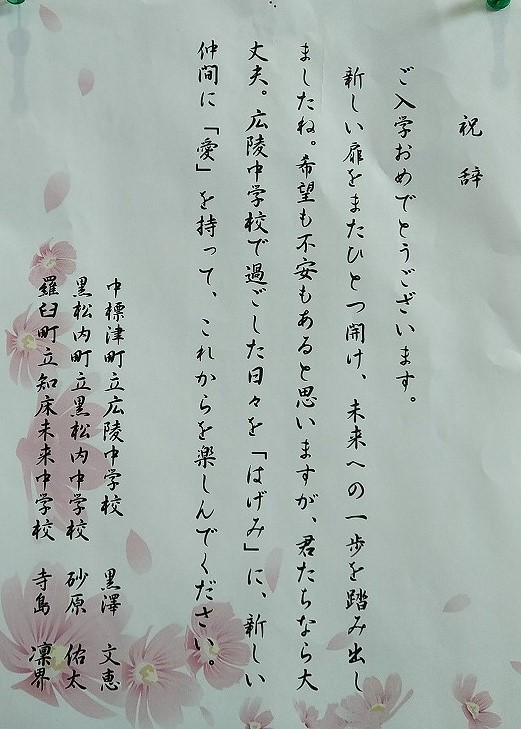 祝辞
ご入学おめでとうございます。
新しい扉をまたひとつ開け、未来への一歩を踏み出し
ましたね。希望も不安もあると思いますが、君たちなら大
丈夫。広陵中学校で過ごした日々を「はげみ」に、新しい
仲間に「愛」を持って、これからを楽しんでください。
中標津町立広陵中学校 黒澤 文恵
黒松内町立黒松内中学校 砂原 佑太
羅臼町立知床未来中学校 寺島 凜界